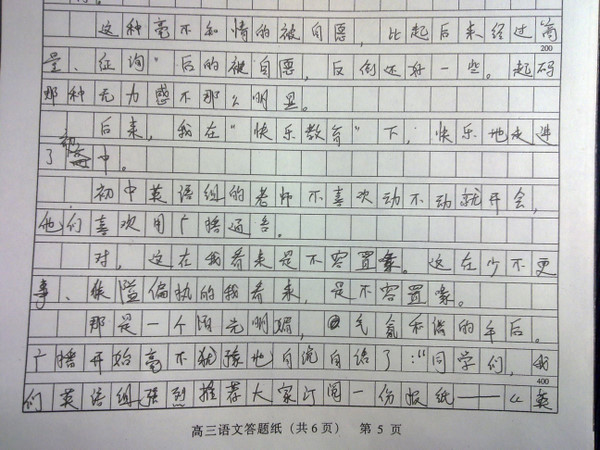 这种毫不知情的被自愿，比起后来经过"商
200
量、征询"后的被自愿，反倒还好一些。起码
那种无力感不那么明显。
后来，我在"快乐教育"下，快乐地走进
了初中。
初中英语组的老师不喜欢动不动就开会，
他们喜欢用广播通告。
对，这在我看来是不容置喙。这在少不更
事、狭隘偏执的我看来，是不容置喙。
那是一个阳光明媚，气氛和谐的午后。
广播开始毫不犹豫地自说自话了："同学们，我
400
们英语组强烈推荐大家订阅一份报纸——《英
高三语文答题纸（共6页） 第 5 页